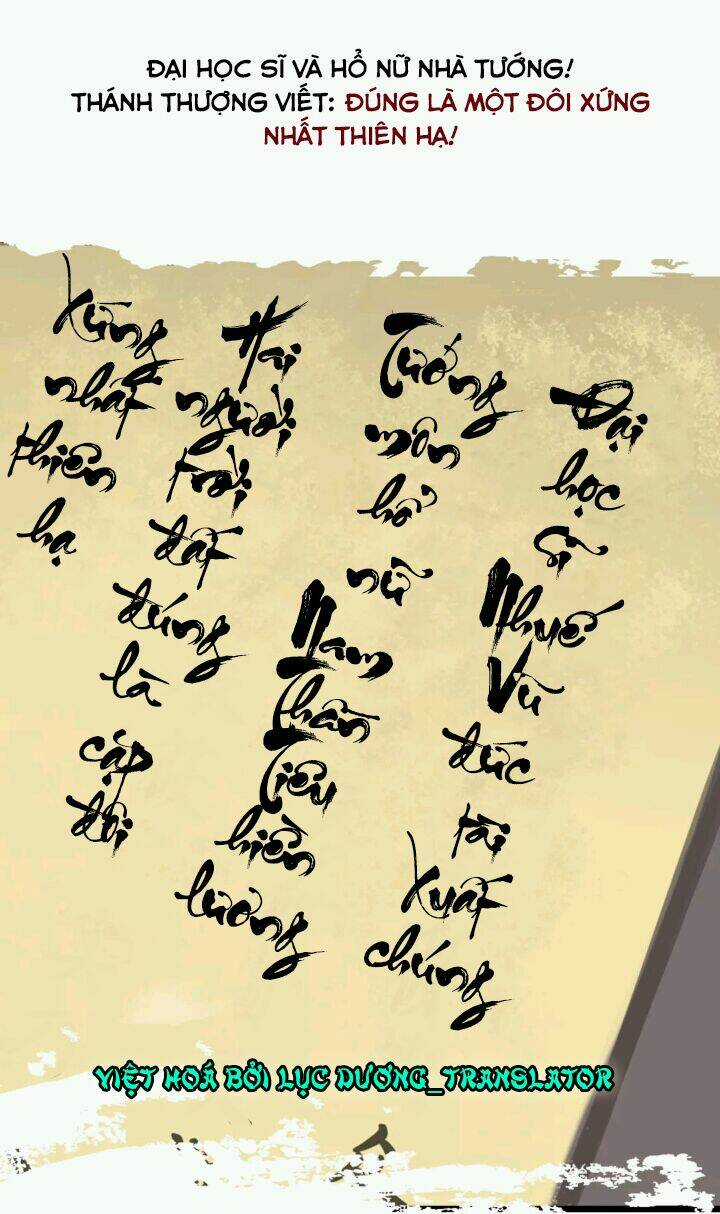 ĐẠI HỌC SĨ VÀ HỔ NỮ NHÀ TƯỚNG!
THÁNH THƯỢNG VIẾT: ĐÚNG LÀ MỘT ĐÔI XỨNG
NHẤT THIÊN HẠ!
Đại học sĩ Nhuế Vũ đức tài xuất chúng
Tướng môn hổ nữ Nam Thần Tiêu hiền lương
Hai người trời đất đúng là cặp đôi
Xứng nhất thiên hạ
VIỆT HOÁ BỞI LỤC DƯƠNG_TRANSLATOR